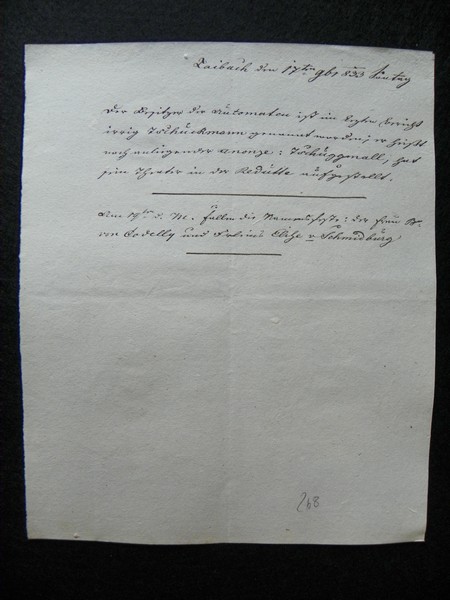 Laibach den 17ten 9br 833 Sontag
Der Besitzer der Automaten ist im lezten Bericht
irrig Tschuckmann genannt worden, er heißt
nach anliegender Anonze: Tschuggmall, hat
sein Theater in der Redutte aufgestellt.
Am 19ten d. M. fallen die Namensfeste: der Frau B.
von Codelly und v Schmidburg
268